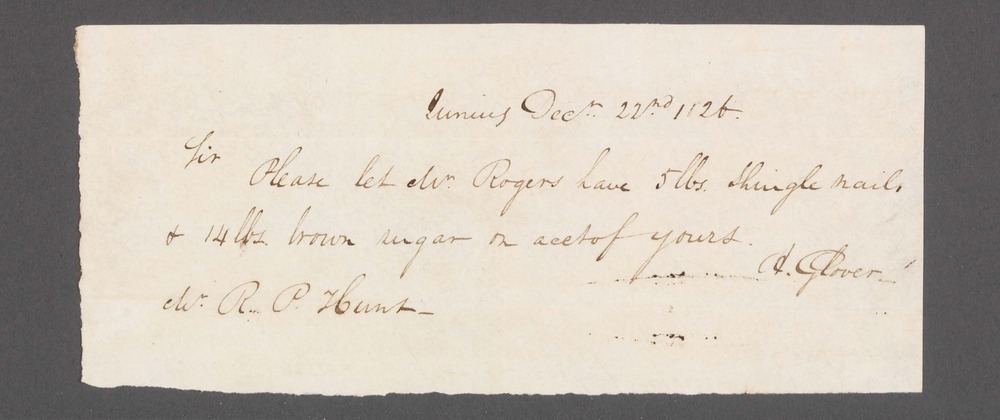 Junius Decr. 22nd 1826.
Sir
Please let Mr. Rogers have 5 lbs. shingle nails
& 14 lbs. brown sugar on acct of yours.
H. Glover
Mr. R. P. Hunt